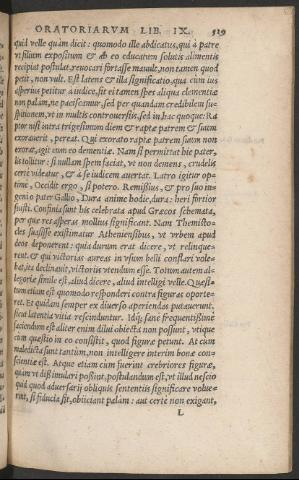 ORATORIARVM LIB. IX. 529
quid velle quàm dicit: quomodo ille abdicatus, qui à patre
vt filium expositum & ab eo educatum solutis alimentis
recipiat postulat, reuocari fortasse mauult, non tamen quod
petit, non vult. Est latens & illa significatio, qua cum ius
asperius petitur à iudice, fit ei tamen spes aliqua clementiæ
non palàm, ne paciscamur, sed per quandam credibilem su-
spitionem, vt in multis controuersiis, sed in hac quoque: Ra
ptor nisi intra trigesimum diem & raptæ patrem & suum
exorauerit, pereat. Qui exorato raptæ patrem suum non
exorat, agit cum eo dementiæ. Nam si permittat hic pater,
lis tollitur: si nullam spem faciat, vt non demens, crudelis
certè videatur, & à se iudicem auertat. Latro igitur op-
timè, Occidit ergo, si potero. Remissius, & pro suo in-
genio pater Gallio, Dura anime hodie, dura: heri fortior
fuisti. Confinia sunt his celebrata apud Græcos schemata,
per quæ res asperas mollius significant. Nam Themisto-
cles suasisse existimatur Atheniensibus, vt vrbem apud
deos deponerent: quia durum erat dicere, vt relinque-
rent. & qui victorias aureas in vsum belli conflari vole-
bat, ita declinauit, victoriis vtendum esse. Totum autem al-
legoriæ simile est, aliud dicere, aliud intelligi velle. Quæsi-
tum etiam est quomodo responderi contra figuras oporte-
ret. Et quidam semper ex diuerso aperiendas putauerunt,
sicut latentia vitia rescinduntur. Idq; sanè frequentissimè
faciendum est aliter enim dilui obiecta non possunt, vtique
cùm quæstio in eo consistit, quod figuræ petunt. At cum
maledicta sunt tantùm, non intelligere interim bonæ con-
scientiæ est. Atque etiam cum fuerint crebriores figuræ,
quàm vt dissimulari possint, postulandum est, vt illud nescio
quid quod aduersarij obliquis sententiis significare volue-
runt, si fiducia sit, obiiciant palàm: aut certè non exigant,
L